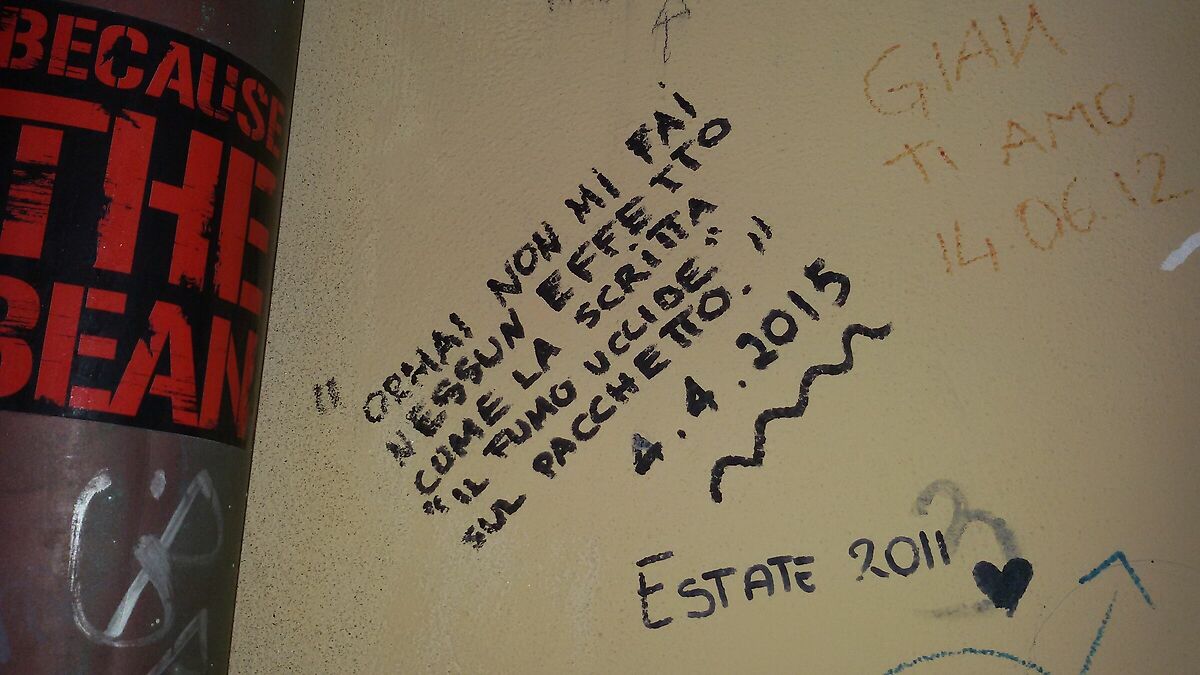 BECAUSE
THE
BEAN
GIAN
TI AMO
14.06.12
" ORMAI NON MI FAI
NESSUN EFFETTO
COME LA SCRITTA
"IL FUMO UCCIDE"
SUL PACCHETTO. "
4.4.2015
ESTATE 2011